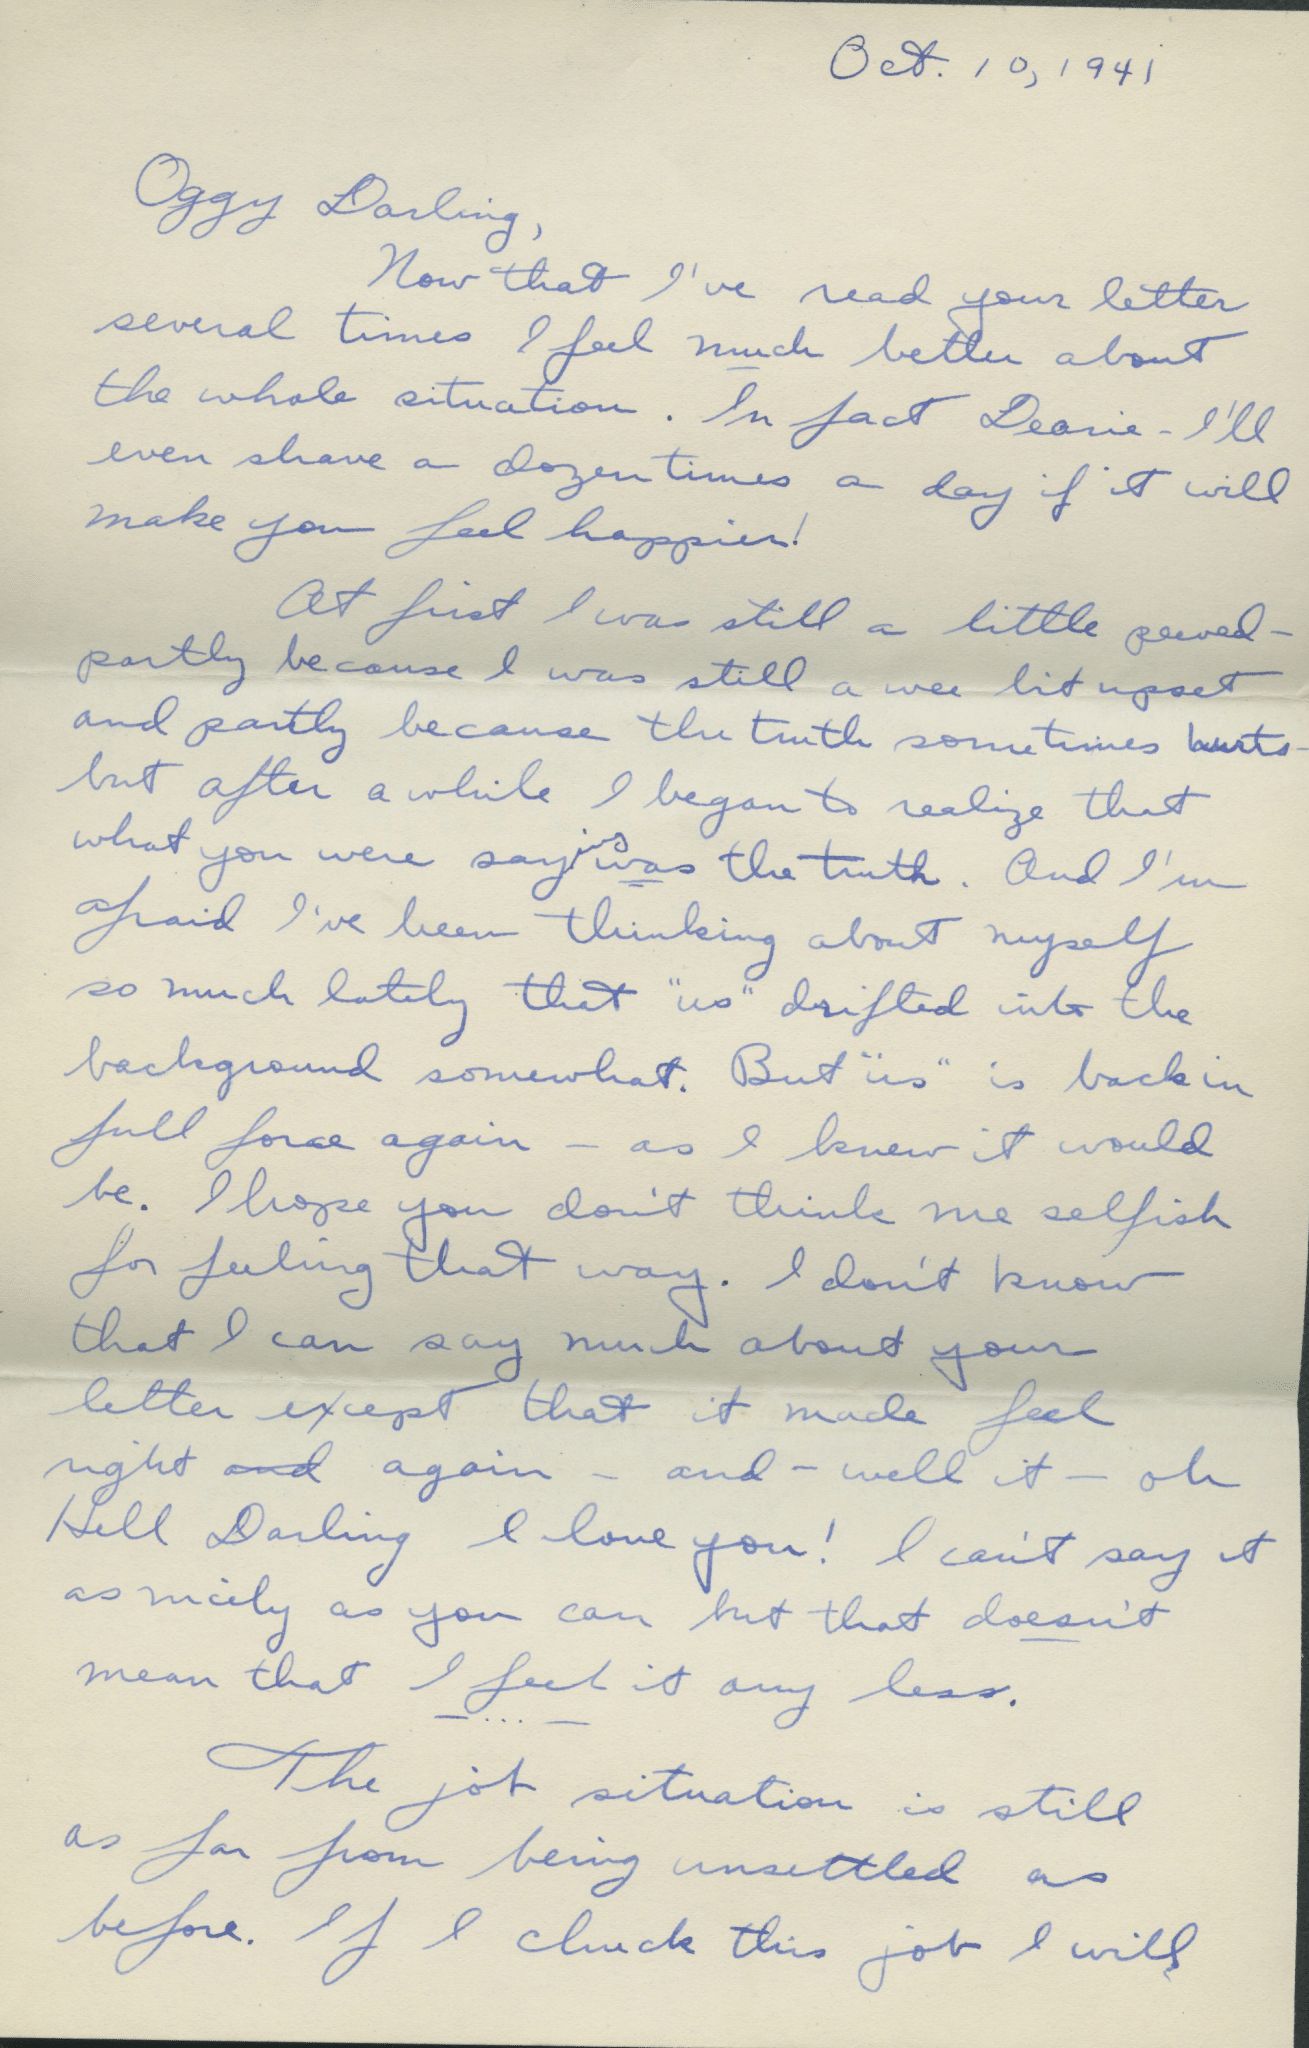 Oct. 10, 1941
Oggy Darling,
Now that I've read your letter
several times I feel much better about
the whole situation. In fact Dearie - I'll
even shave a dozen times a day if it will
make you feel happier!
At first I was still a little peeved -
partly because I was still a wee bit upset
and partly because the truth sometimes hurts -
but after a while I began to realize that
what you were saying was the truth. And I'm
afraid I've been thinking about myself
so much lately that "us" drifted into the
background somewhat. But "us" is back in
full force again - as I knew it would
be. I hope you don't think me selfish
for feeling that way. I don't know
that I can say much about your
letter except that it made feel
right and again - and - well it - oh
Hell Darling I love you! I can't say it
as nicely as you can but that doesn't
mean that I feel it any less.
— ... —
The job situation is still
as far from being unsettled as
before. If I chuck this job I will